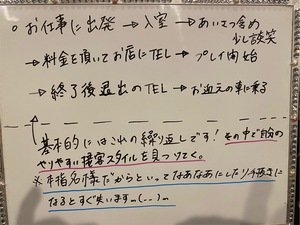 ○ お仕事に出発 → 入室 → あいさつ含め
少し談笑
→ 料金を頂いてお店にTEL → プレイ開始
→ 終了後退出のTEL → お迎えの車に乗る
基本的にはこれの繰り返しです！その中で自分の
やりやすい接客スタイルを見つけてく。
※本指名様だからといってなあなあにしたり手抜きに
なるとすぐ失いますm(._.)m